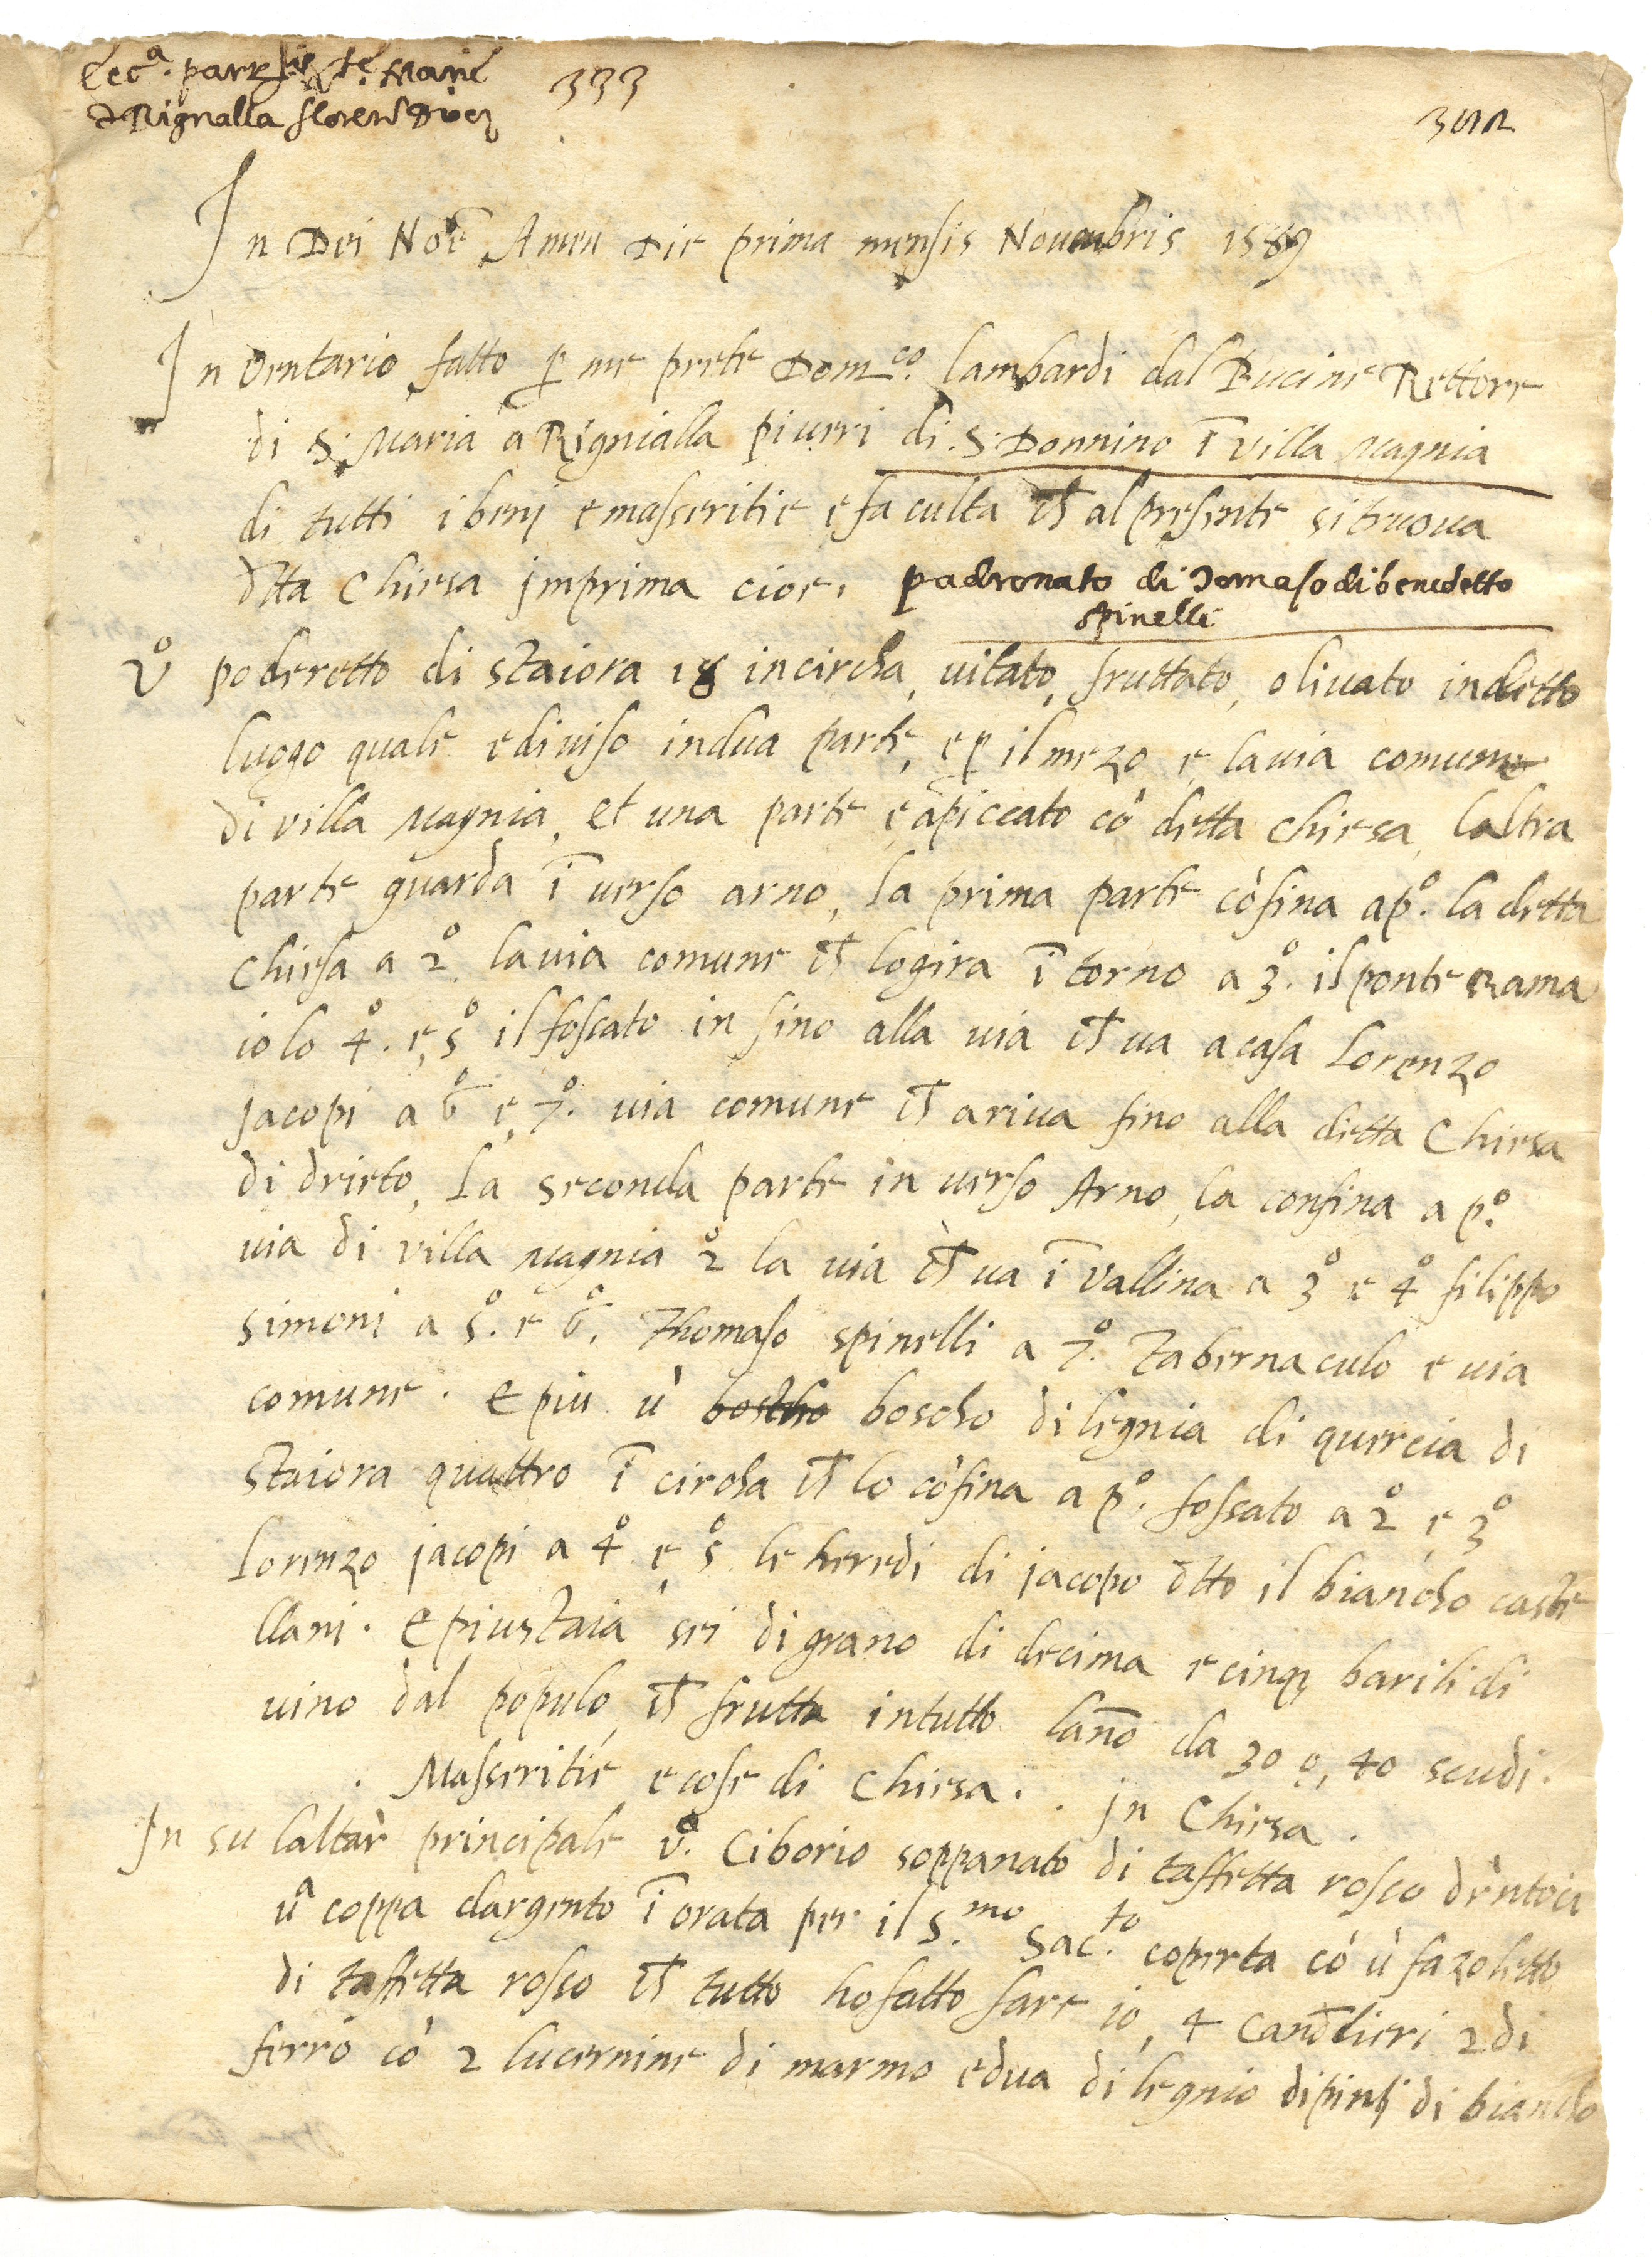 Ecc.a par.lis s.te Marie
d Rignalla floren Dioc
333
In Dei Noē Amen Die prima mensis Nouenbris 1589
Inventario fatto ꝑ me prete Dom.co lambardi dal Bucine Rettore
di S. Maria a Rignialla piueri di S. Donnino ī villa Magnia
di tutti i benj e masseritie e faculta cħ al presente si truova
dtta Chiesa jmprima cioe. padronato di Tomaso di benedetto
spinelli
vo poderetto di staiora 18 incircha, vitato, fruttato, olivato indetto
luogo quale e diuiso indua parte, e ꝑ il mezo e la via comune
di villa Magnia, et una parte e apiccato cō detta chiesa, laltra
parte guarda ī verso arno, la prima parte cōfina a p.o la detta
chiesa a 2.o la via comune cħ logira ī torno a 3.o il ponte Rama
iolo 4.o e 5o il fossato in sino alla via cħ va a casa Lorenzo
Jacopi a 6o e 7.o via comune cħ ariva fino alla detta Chiesa
di drieto, La seconda parte in verso Arno, la confina a p.o
via di villa Magnia 2o la via cħ va ī vallina a 3o e 4o filippo
simonj a 5.o e 6.o Thomaso spinelli a 7.o Tabernaculo e via
comune. E piu ū boscho boscho di legnia di quercia di
staiora quattro ī circha cħ lo cōfina a p.o fossato a 2o e 3o
Lorenzo jacopi a 4o e 5o le heredi di jacopo dtto il biancho caste
llani. E piu staia sei di grano di decima e cinqꝫ barili di
vino dal populo, cħ frutta intutto lanō da 30 o, 40 scudi.
. Masseritie e cose di Chiesa. . jn Chiesa.
In su laltar principale v.o Ciborio soppanato di taffetta rosso drentovi
ūa coppa dargento ī orata per il S.mo Sac.to coperta cō ū fazoletto
di taffetta rosso cħ tutto ho fatto fare io, 4 candlieri 2 di
ferro cō 2 lucernine di marmo e dua di legnio dipinti di biancho